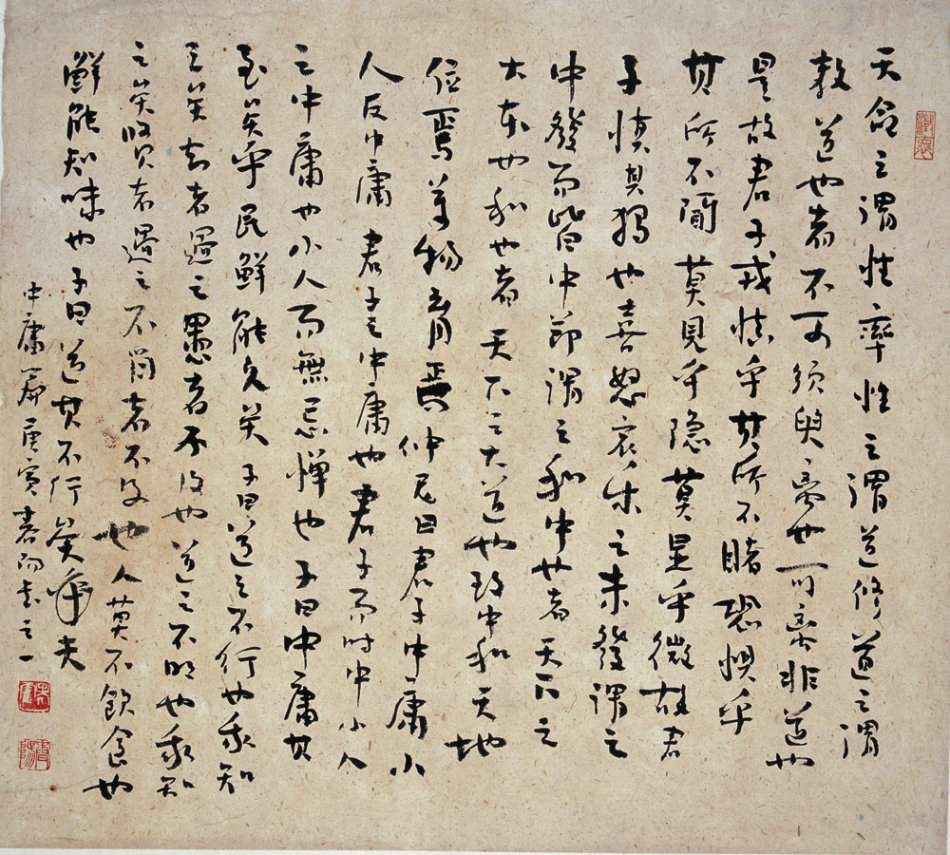 天命之謂性率性之謂道修道之謂
教道也者不可須臾離也可離非道也
是故君子戒慎乎其所不睹恐惧乎
其所不聞莫見乎隐莫显乎微故君
子慎其獨也喜怒哀乐之未發謂之
中發而皆中節謂之和中也者天下之
大本也和也者天下之大道也致中和天地
位焉萬物育焉仲尼曰君子中庸小
人反中庸君子之中庸也君子而时中小人
之中庸也小人而無忌惮也子曰中庸其
至矣乎民鮮能久矣子曰道之不行也我知
之矣知者過之愚者不及也道之不明也我知
之矣賢者過之不肖者不及也人莫不飲食也
鮮能知味也子曰道其不行矣乎夫
中庸篇庚寅春阳书之一